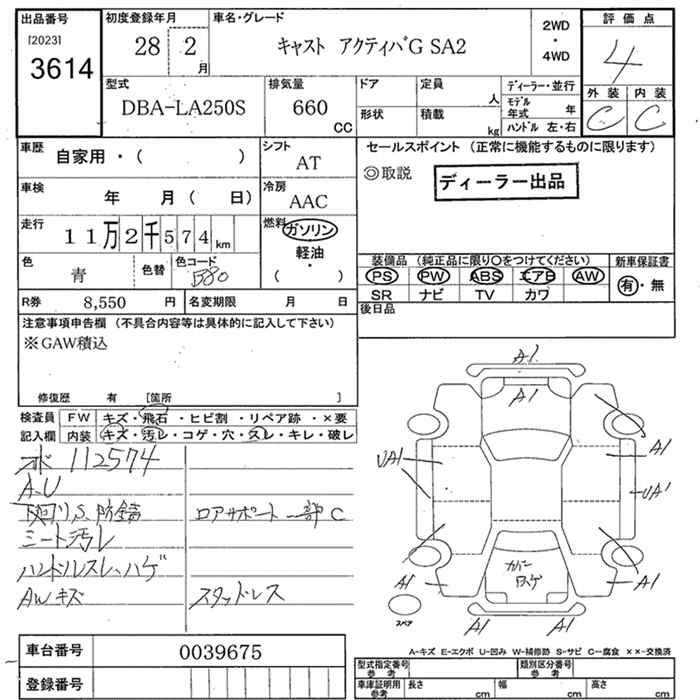 出品番号
[2023]
3614
初度登録年月
28 2 月
車名・グレード
キャスト アクティバG SA2
2WD
・
4WD
評価点
4
外装 内装
C C
型式
DBA-LA250S
排気量
660
CC
ドア
形状
定員
人
積載
kg
ディーラー・並行
モデル年式 年
ハンドル 左・右
車歴
自家用・( )
シフト
AT
車検
年 月( 日)
冷房
AAC
走行
11万2千574km
燃料
ガソリン
軽油
・
( )
色
青
色替
色コード
B80
R券 8,550 円
名変期限 月 日
セールスポイント (正常に機能するものに限ります)
◎取説
ディーラー出品
装備品 (純正品に限り○をつけてください)
PS PW ABS エアB AW
SR ナビ TV カワ
新車保証書
有・無
後日品
注意事項申告欄 (不具合内容等は具体的に記入して下さい)
※GAW積込
修復歴 有 [箇所 ]
検査員
記入欄
FW キズ・飛石・ヒビ割・リペア跡・×要
内装 キズ・汚レ・コゲ・穴・スレ・キレ・破レ
メーター 112574
A-U
下廻りS、防錆
ロアサポート一部C
シート汚レ
ハンドルスレ、ハゲ
AWキズ
スタッドレス
A1
A1
A1
UA1
UA1
カバー
ロスケ
A1
A1
A1
A1
スペア
A-キズ E-エクボ U-凹み W-補修跡 S-サビ C-腐食 ××-交換済
車台番号
0039675
登録番号
型式指定番号
参考
類別区分番号
参考
車庫証明用
参考
長さ cm
幅 cm
高さ cm